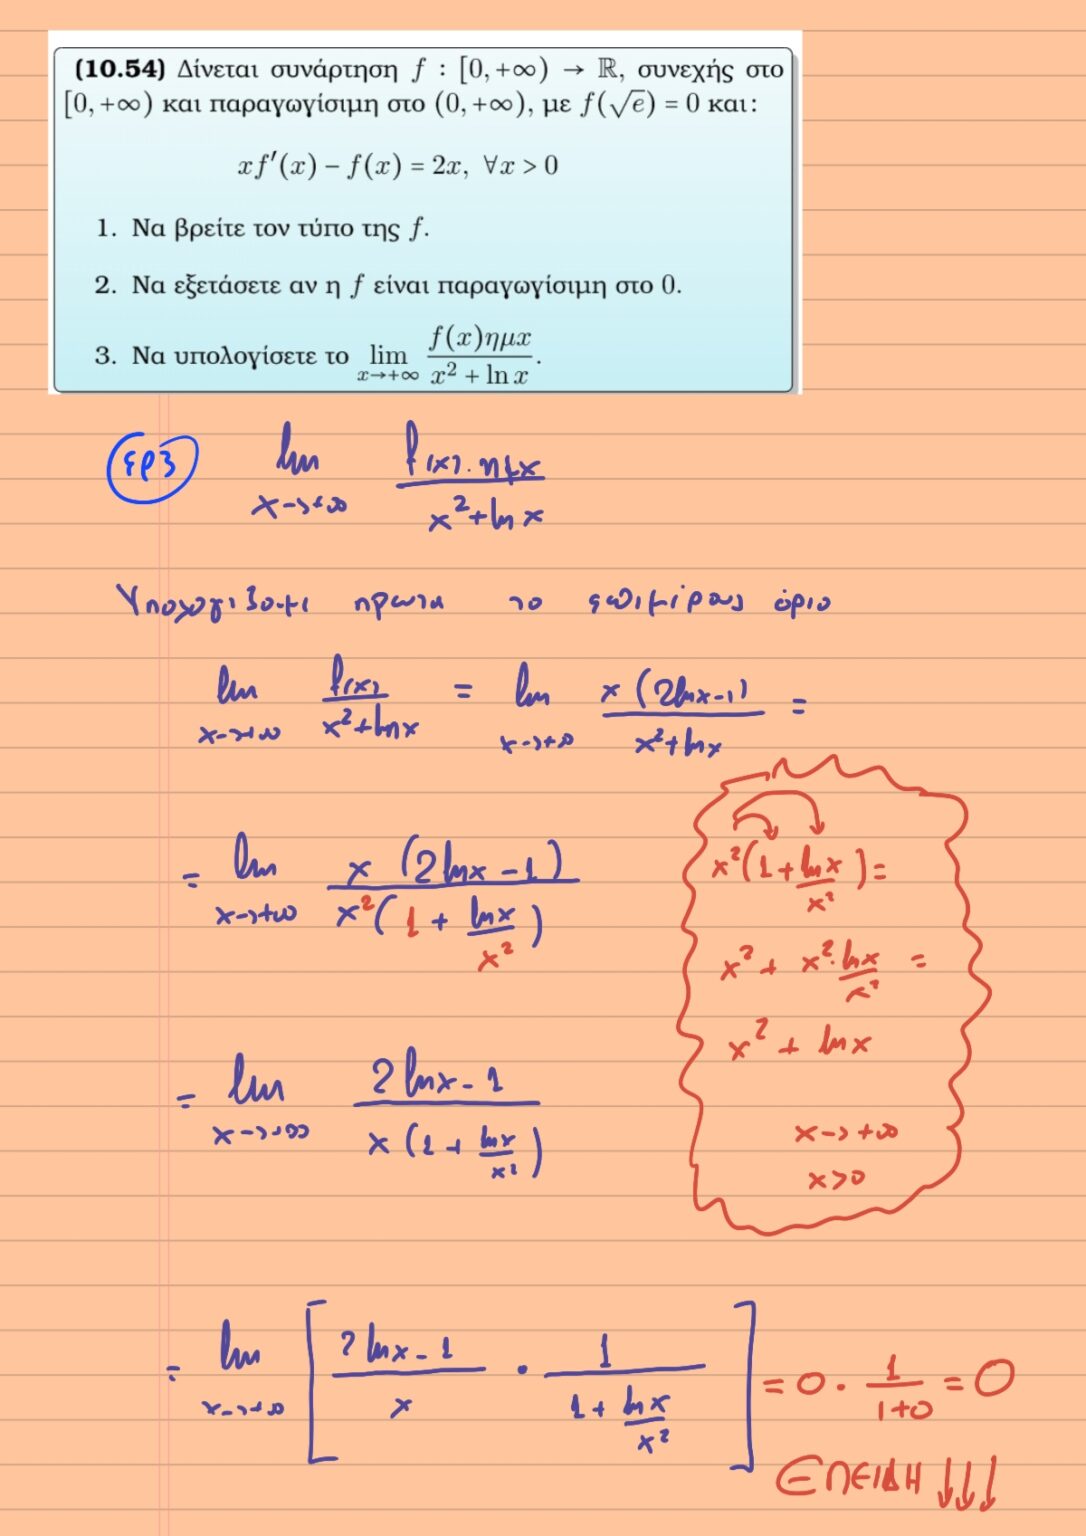 (10.54) Δίνεται συνάρτηση f : [0, +∞) → ℝ, συνεχής στο
[0, +∞) και παραγωγίσιμη στο (0, +∞), με f(√e) = 0 και:
xf′(x) − f(x) = 2x, ∀x > 0
1. Να βρείτε τον τύπο της f.
2. Να εξετάσετε αν η f είναι παραγωγίσιμη στο 0.
3. Να υπολογίσετε το lim x→+∞ f(x)ημx / x² + ln x.
ερ3 lim x→+∞ f(x)·ημx / x²+ln x
Υπολογιζουμε πρωτα το επιμέρους όριο
lim x→+∞ f(x) / x²+lnx = lim x→+∞ x(2lnx-1) / x²+lnx =
= lim x→+∞ x(2lnx-1) / x²(1+lnx/x²)
x²(1+lnx/x²)=
x²+x²·lnx/x² =
x²+lnx
= lim x→+∞ 2lnx-1 / x(1+lnx/x²)
x→+∞
x>0
= lim x→+∞ [2lnx-1 / x · 1 / 1+lnx/x²] = 0 · 1/1+0 = 0
ΕΠΕΙΔΗ ↓↓↓